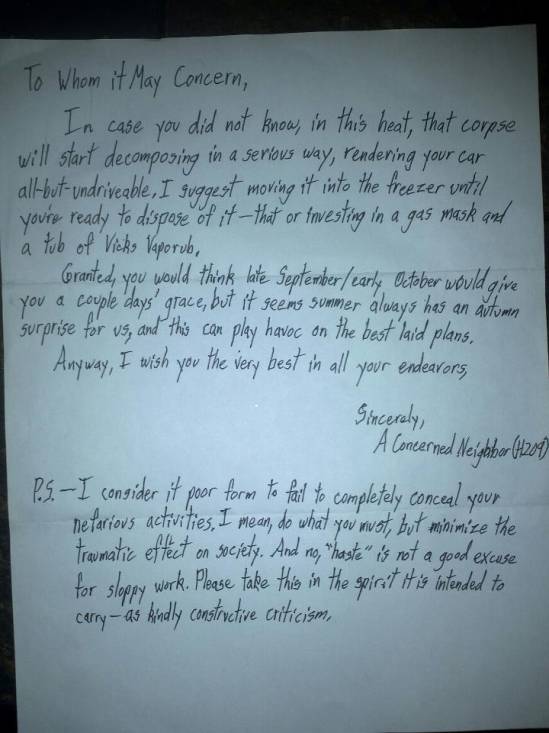 To Whom it May Concern,
In case you did not know, in this heat, that corpse
will start decomposing in a serious way, rendering your car
all-but-undriveable. I suggest moving it into the freezer until
you're ready to dispose of it—that or investing in a gas mask and
a tub of Vicks Vaporub.
Granted, you would think late September/early October would give
you a couple days' grace, but it seems summer always has an autumn
surprise for us, and this can play havoc on the best laid plans.
Anyway, I wish you the very best in all your endeavors,
Sincerely,
A Concerned Neighbor (H204)
P.S.—I consider it poor form to fail to completely conceal your
nefarious activities. I mean, do what you must, but minimize the
traumatic effect on society. And no, "haste" is not a good excuse
for sloppy work. Please take this in the spirit it is intended to
carry—as kindly constructive criticism.